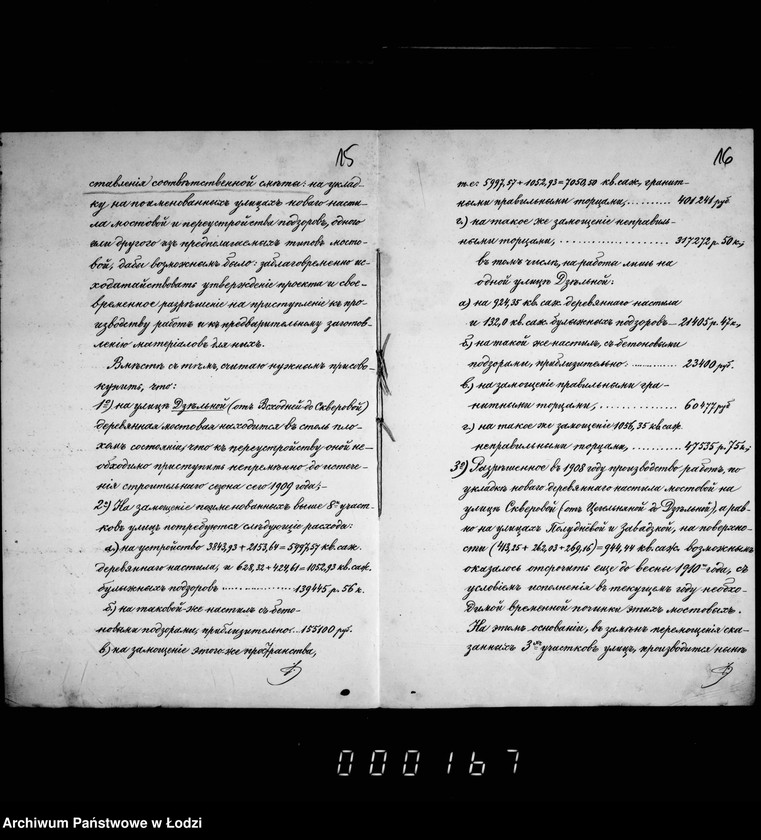 15
ставленія соотвѣтственной смѣты: на уклад-
ку на поименованныхъ улицахъ новаго насти-
ла мостовой и переустройства подзоровъ, одного
или другого изъ предлагаемыхъ типовъ мосто-
вой, дабы возможнымъ было: заблаговременно ис-
ходатайствовать утвержденіе проекта и свое-
временное разрѣшеніе на приступленіе къ про-
изводству работъ и къ предварительному заготов-
ленію матеріаловъ для нихъ.
Вмѣстѣ съ тѣмъ, считаю нужнымъ присово-
купить, что:
1º) на улицѣ Дзѣльной (отъ Входней до Скверовой)
деревянная мостовая находится въ столь пло-
хомъ состояніи, что къ переустройству оной не-
обходимо приступить непремѣнно до истече-
нія строительнаго сезона сего 1909 года;-
2º) На замощеніе поименованныхъ выше 8ми участ-
ковъ улицъ потребуются слѣдующіе расходы:
а) на устройство 3843,93 + 2153,64 = 5997,57 кв. саж.
деревяннаго настила, и 628,32 + 424,61 = 1052,93 кв. саж.
булыжныхъ подзоровъ 139445 р. 56 к.
б) на таковой-же настилъ съ бето-
новыми подзорами, приблизительно 155100 руб.
в) на замощеніе этого же пространства,
16
т. е: 5997,57 + 1052,93 = 7050,50 кв. саж. гранит-
ными правильными торцами, 401241 руб
г) на такое же замощеніе неправиль-
ными торцами, 317272 р. 50 к;
въ томъ числѣ, на работы лишь на
одной улицѣ Дзѣльной:
а) на 924,35 кв. саж. деревяннаго настила
и 132,0 кв. саж. булыжныхъ подзоровъ 21405 р. 47 к,
б) на такой же настилъ, съ бетоновыми
подзорами, приблизительно: 23400 руб.
в) на замощеніе правильными гра-
нитными торцами, 60477 руб
г) на такое же замощеніе 1056,35 кв. саж.
неправильными торцами, 47535 р. 75 к;
3º) Разрѣшенное въ 1908 году производство работъ, по
укладкѣ новаго деревяннаго настила мостовой на
улицѣ Скверовой (отъ Цегельняной до Дзѣльной), а рав-
но на улицахъ Полуднёвой и Завадзкой, на поверхно-
сти (413,25 + 262,03 + 269,16) = 944,44 кв. саж. возможнымъ
оказалось отсрочить еще до весны 1910го года, съ
условіемъ исполненія въ текущемъ году необхо-
димой временной починки этихъ мостовыхъ.
На этомъ основаніи, въ замѣнъ перемощенія ска-
занныхъ 3хъ участковъ улицъ, производится нынѣ
000167
Archiwum Państwowe w Łodzi